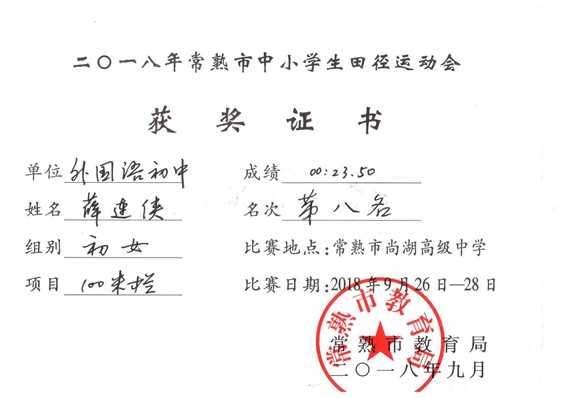 二〇一八年常熟市中小学生田径运动会
获奖证书
单位 外国语初中 成绩 00:23.50
姓名 薛连侠 名次 第八名
组别 初女 比赛地点：常熟市尚湖高级中学
项目 100米栏 比赛日期：2018年9月26日—28日
常熟市教育局
常熟市教育局
二〇一八年九月